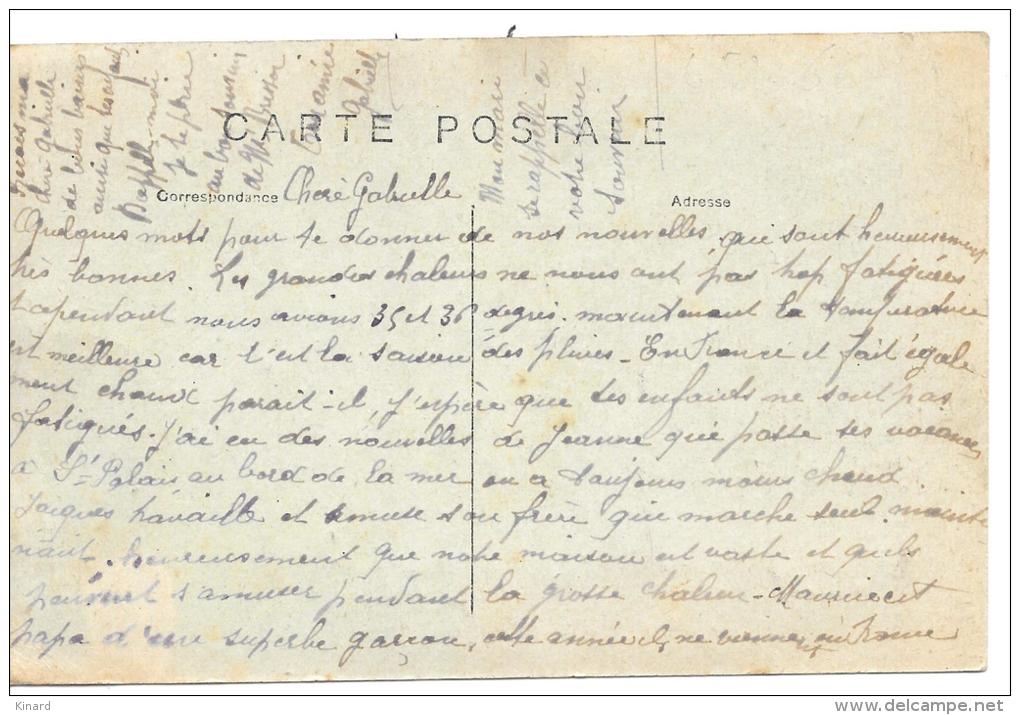 CARTE POSTALE
Correspondance
Adresse
Chère Gabrielle
Quelques mots pour te donner de nos nouvelles qui sont heureusement
très bonnes. Les grandes chaleurs ne nous ont pas trop fatiguées
cependant nous avions 35 et 36 degrés. maintenant la température
est meilleure car c'est la saison des pluies - En France il fait égale
ment chaud parait-il, j'espère que tes enfants ne sont pas
fatigués. J'ai eu des nouvelles de Jeanne qui passe ses vacances
à St Palais au bord de la mer on a toujours moins chaud.
Jacques travaille et amuse son frère qui marche seul mainte
nant. heureusement que notre maison est vaste et qu'ils
peuvent s'amuser pendant la grosse chaleur - Maurice est
papa d'un superbe garçon, cette année ils ne viennent en France
ma
chère Gabrielle
de bons baisers
ainsi que les enfants
Rappelle-moi
je te prie
au bon souvenir
de
Ton amie
Gabrielle
Mon mari
se rappelle à
votre bon
Souvenir
Kinard
delcampe.net